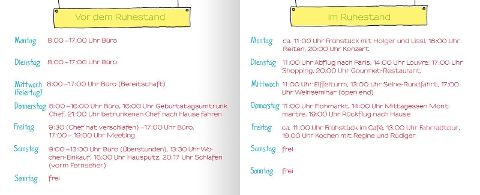 Vor dem Ruhestand
Montag 8:00 –17:00 Uhr Büro
Dienstag 8:00 –17:00 Uhr Büro
Mittwoch 8:00 –17:00 Uhr Büro (Bereitschaft)
(Feiertag)
Donnerstag 8:00 –16:00 Uhr Büro, 16:00 Uhr Geburtstagsumtrunk
Chef, 21:00 Uhr betrunkenen Chef nach Hause fahren
Freitag 9:30 (Chef hat verschlafen) –17:00 Uhr Büro,
17:00 – 19:00 Uhr Meeting
Samstag 9:00 –13:00 Uhr Büro (Überstunden), 13:30 Uhr Wo-
chen-Einkauf, 16:00 Uhr Hausputz, 20:17 Uhr Schlafen
(vorm Fernseher)
Sonntag frei
Im Ruhestand
Montag ca. 11:00 Uhr Frühstück mit Holger und Ussi, 16:00 Uhr
Reiten, 20:00 Uhr Konzert.
Dienstag 11:00 Uhr Abflug nach Paris, 14:00 Uhr Louvre, 17:00 Uhr
Shopping, 20:00 Uhr Gourmet-Restaurant.
Mittwoch 11:00 Uhr Eiffelturm, 13:00 Uhr Seine-Rundfahrt, 17:00
Uhr Weinseminar (open end)
Donnerstag 11:00 Uhr Flohmarkt, 14:00 Uhr Mittagessen Mont
martre, 19:00 Uhr Rückflug nach Hause
Freitag ca. 11:00 Uhr Frühstück im Café, 13:00 Uhr Fahrradtour,
19:00 Uhr Kochen mit Regine und Rüdiger
Samstag frei
Sonntag frei